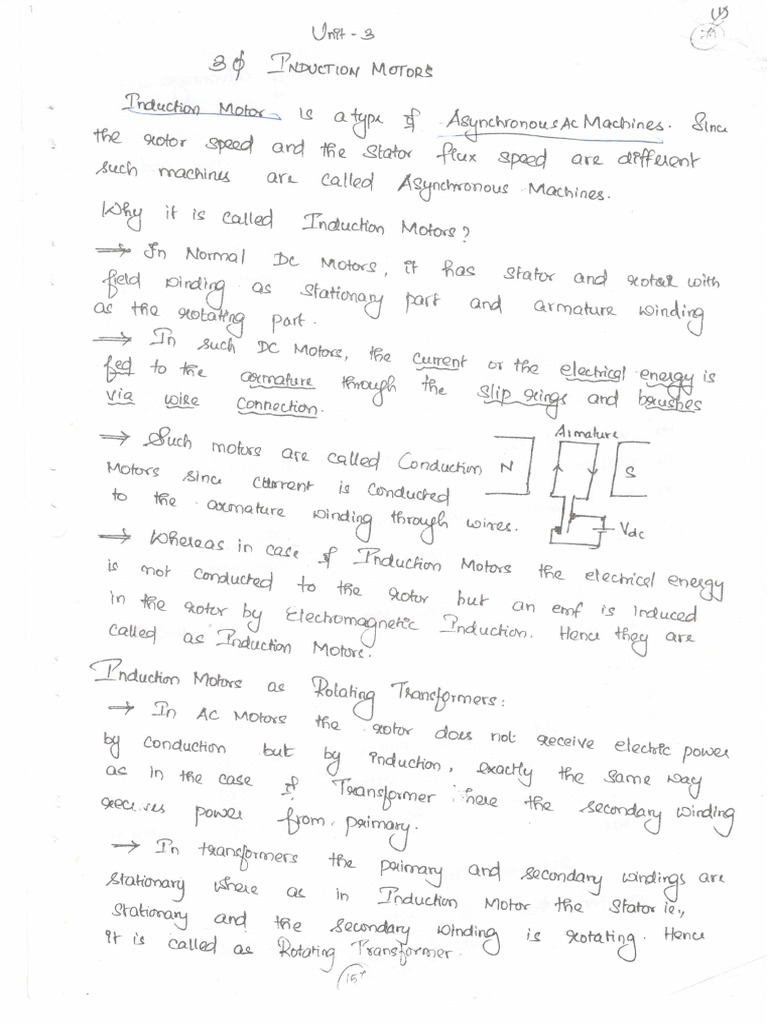 Unit - 3
3φ INDUCTION MOTORS
Induction Motor is a type of Asynchronous AC Machines. Since
the rotor speed and the stator flux speed are different
such machines are called Asynchronous Machines.
Why it is called Induction Motors?
⇒ In Normal DC Motors, it has stator and rotor with
field winding as stationary part and armature winding
as the rotating part.
⇒ In such DC Motors, the current or the electrical energy is
fed to the armature through the slip rings and brushes
via wire connection.
Armature
⇒ Such motors are called Conduction
N S
Motors since current is conducted
to the armature winding through wires.
Vdc
⇒ Whereas in case of Induction Motors the electrical energy
is not conducted to the rotor but an emf is induced
in the rotor by Electromagnetic Induction. Hence they are
called as Induction Motors.
Induction Motors as Rotating Transformers:
→ In AC Motors the rotor does not receive electric power
by conduction but by induction, exactly the same way
as in the case of Transformer here the secondary winding
receives power from primary.
→ In transformers the primary and secondary windings are
stationary where as in Induction Motor the Stator ie.,
stationary and the secondary winding is rotating. Hence
it is called as Rotating Transformer.